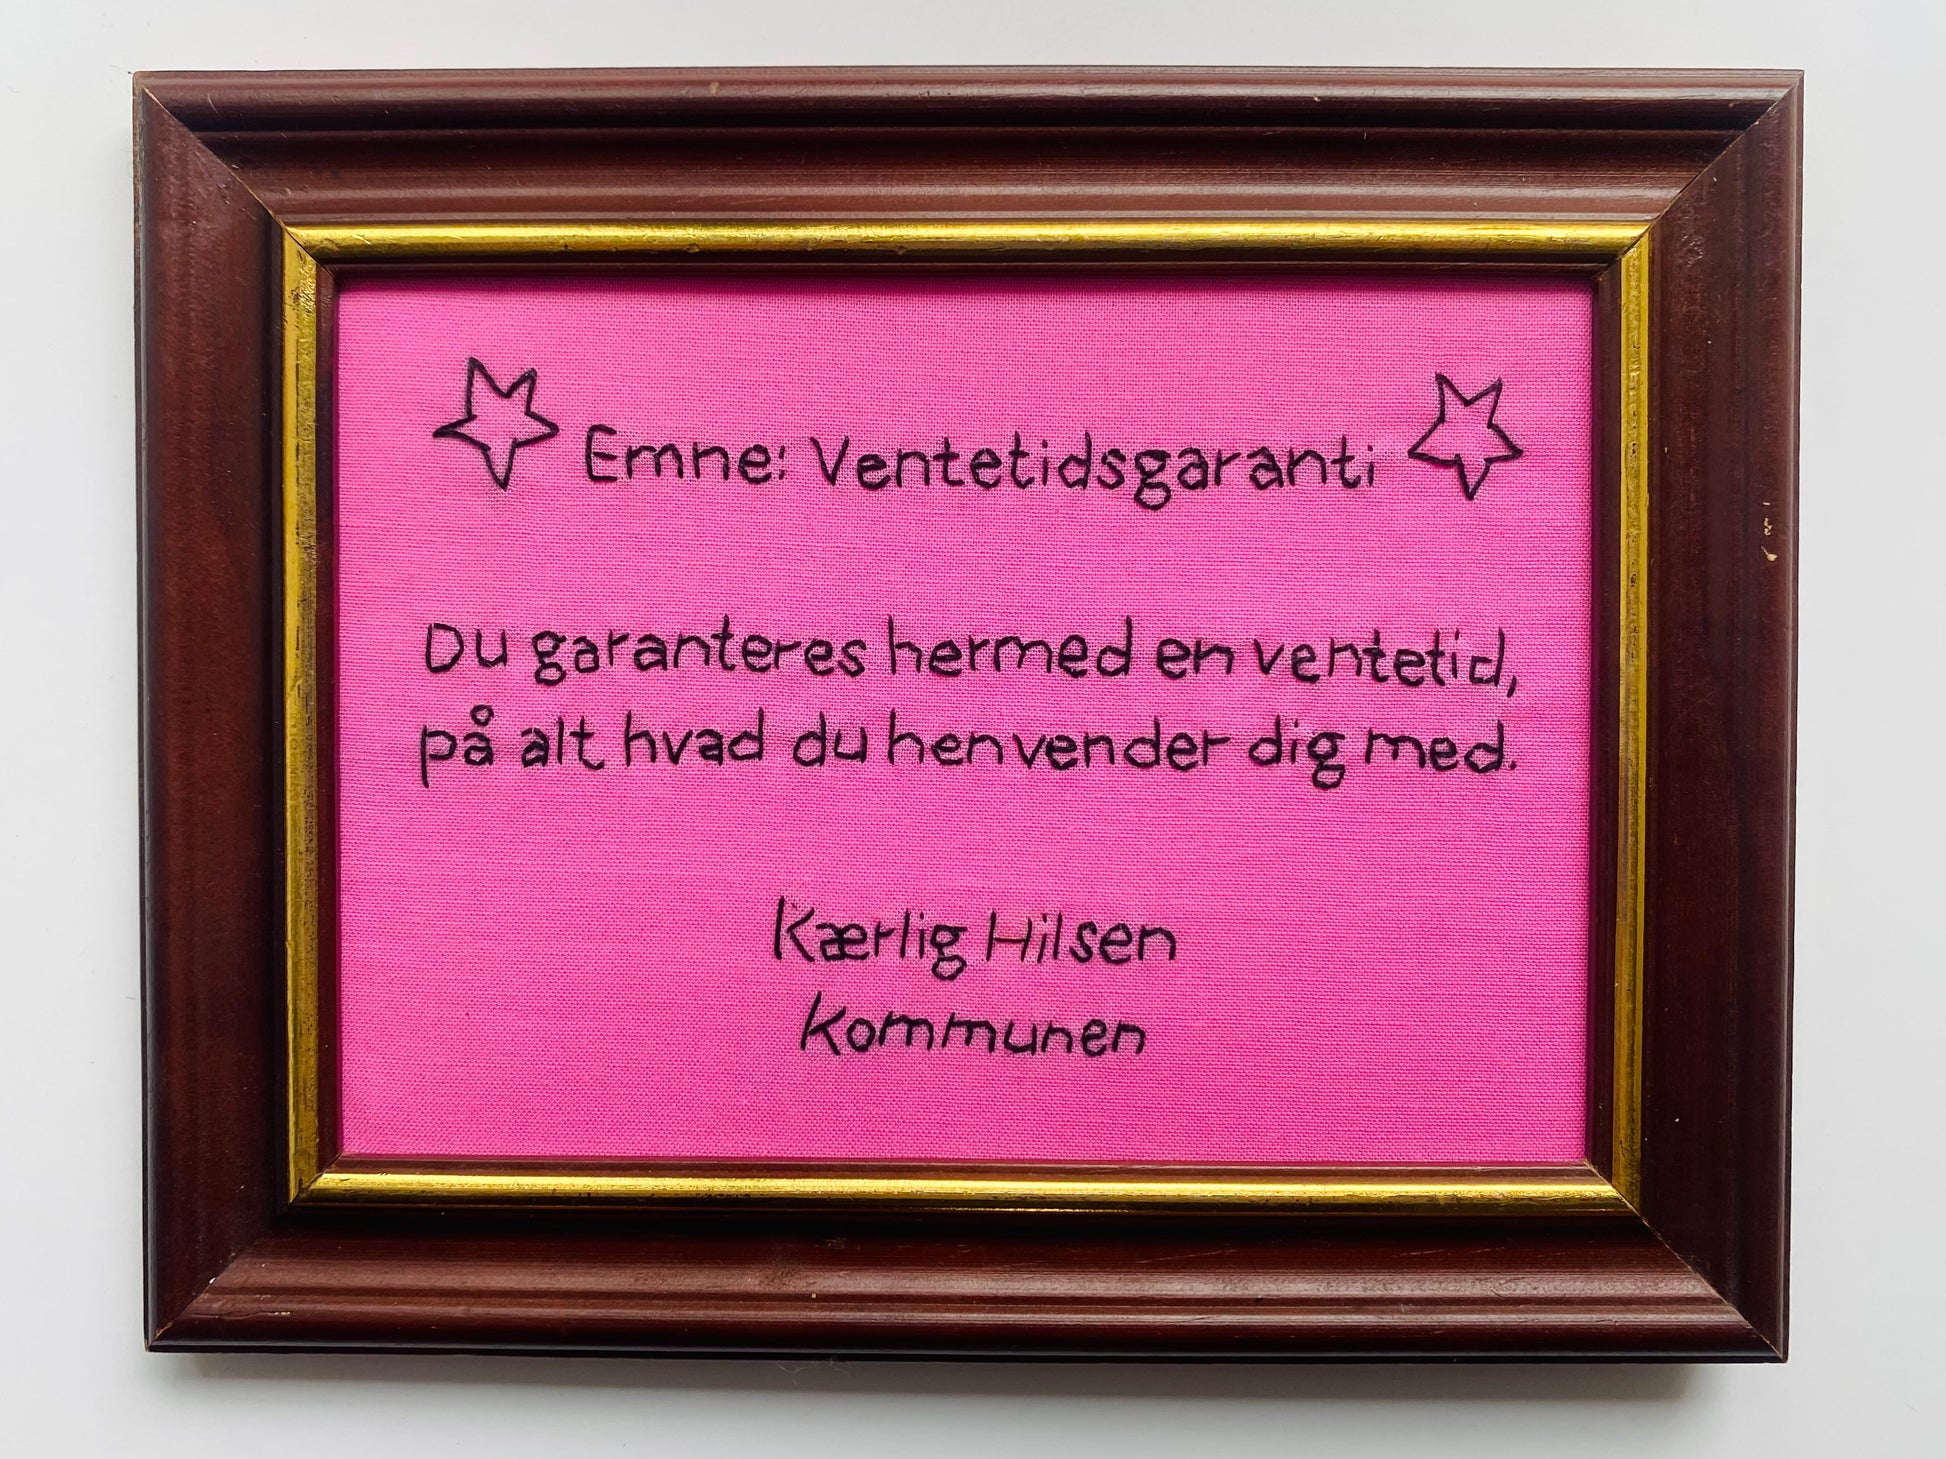 Emne: Ventetidsgaranti
Du garanteres hermed en ventetid,
på alt hvad du henvender dig med.
Kærlig Hilsen
Kommunen